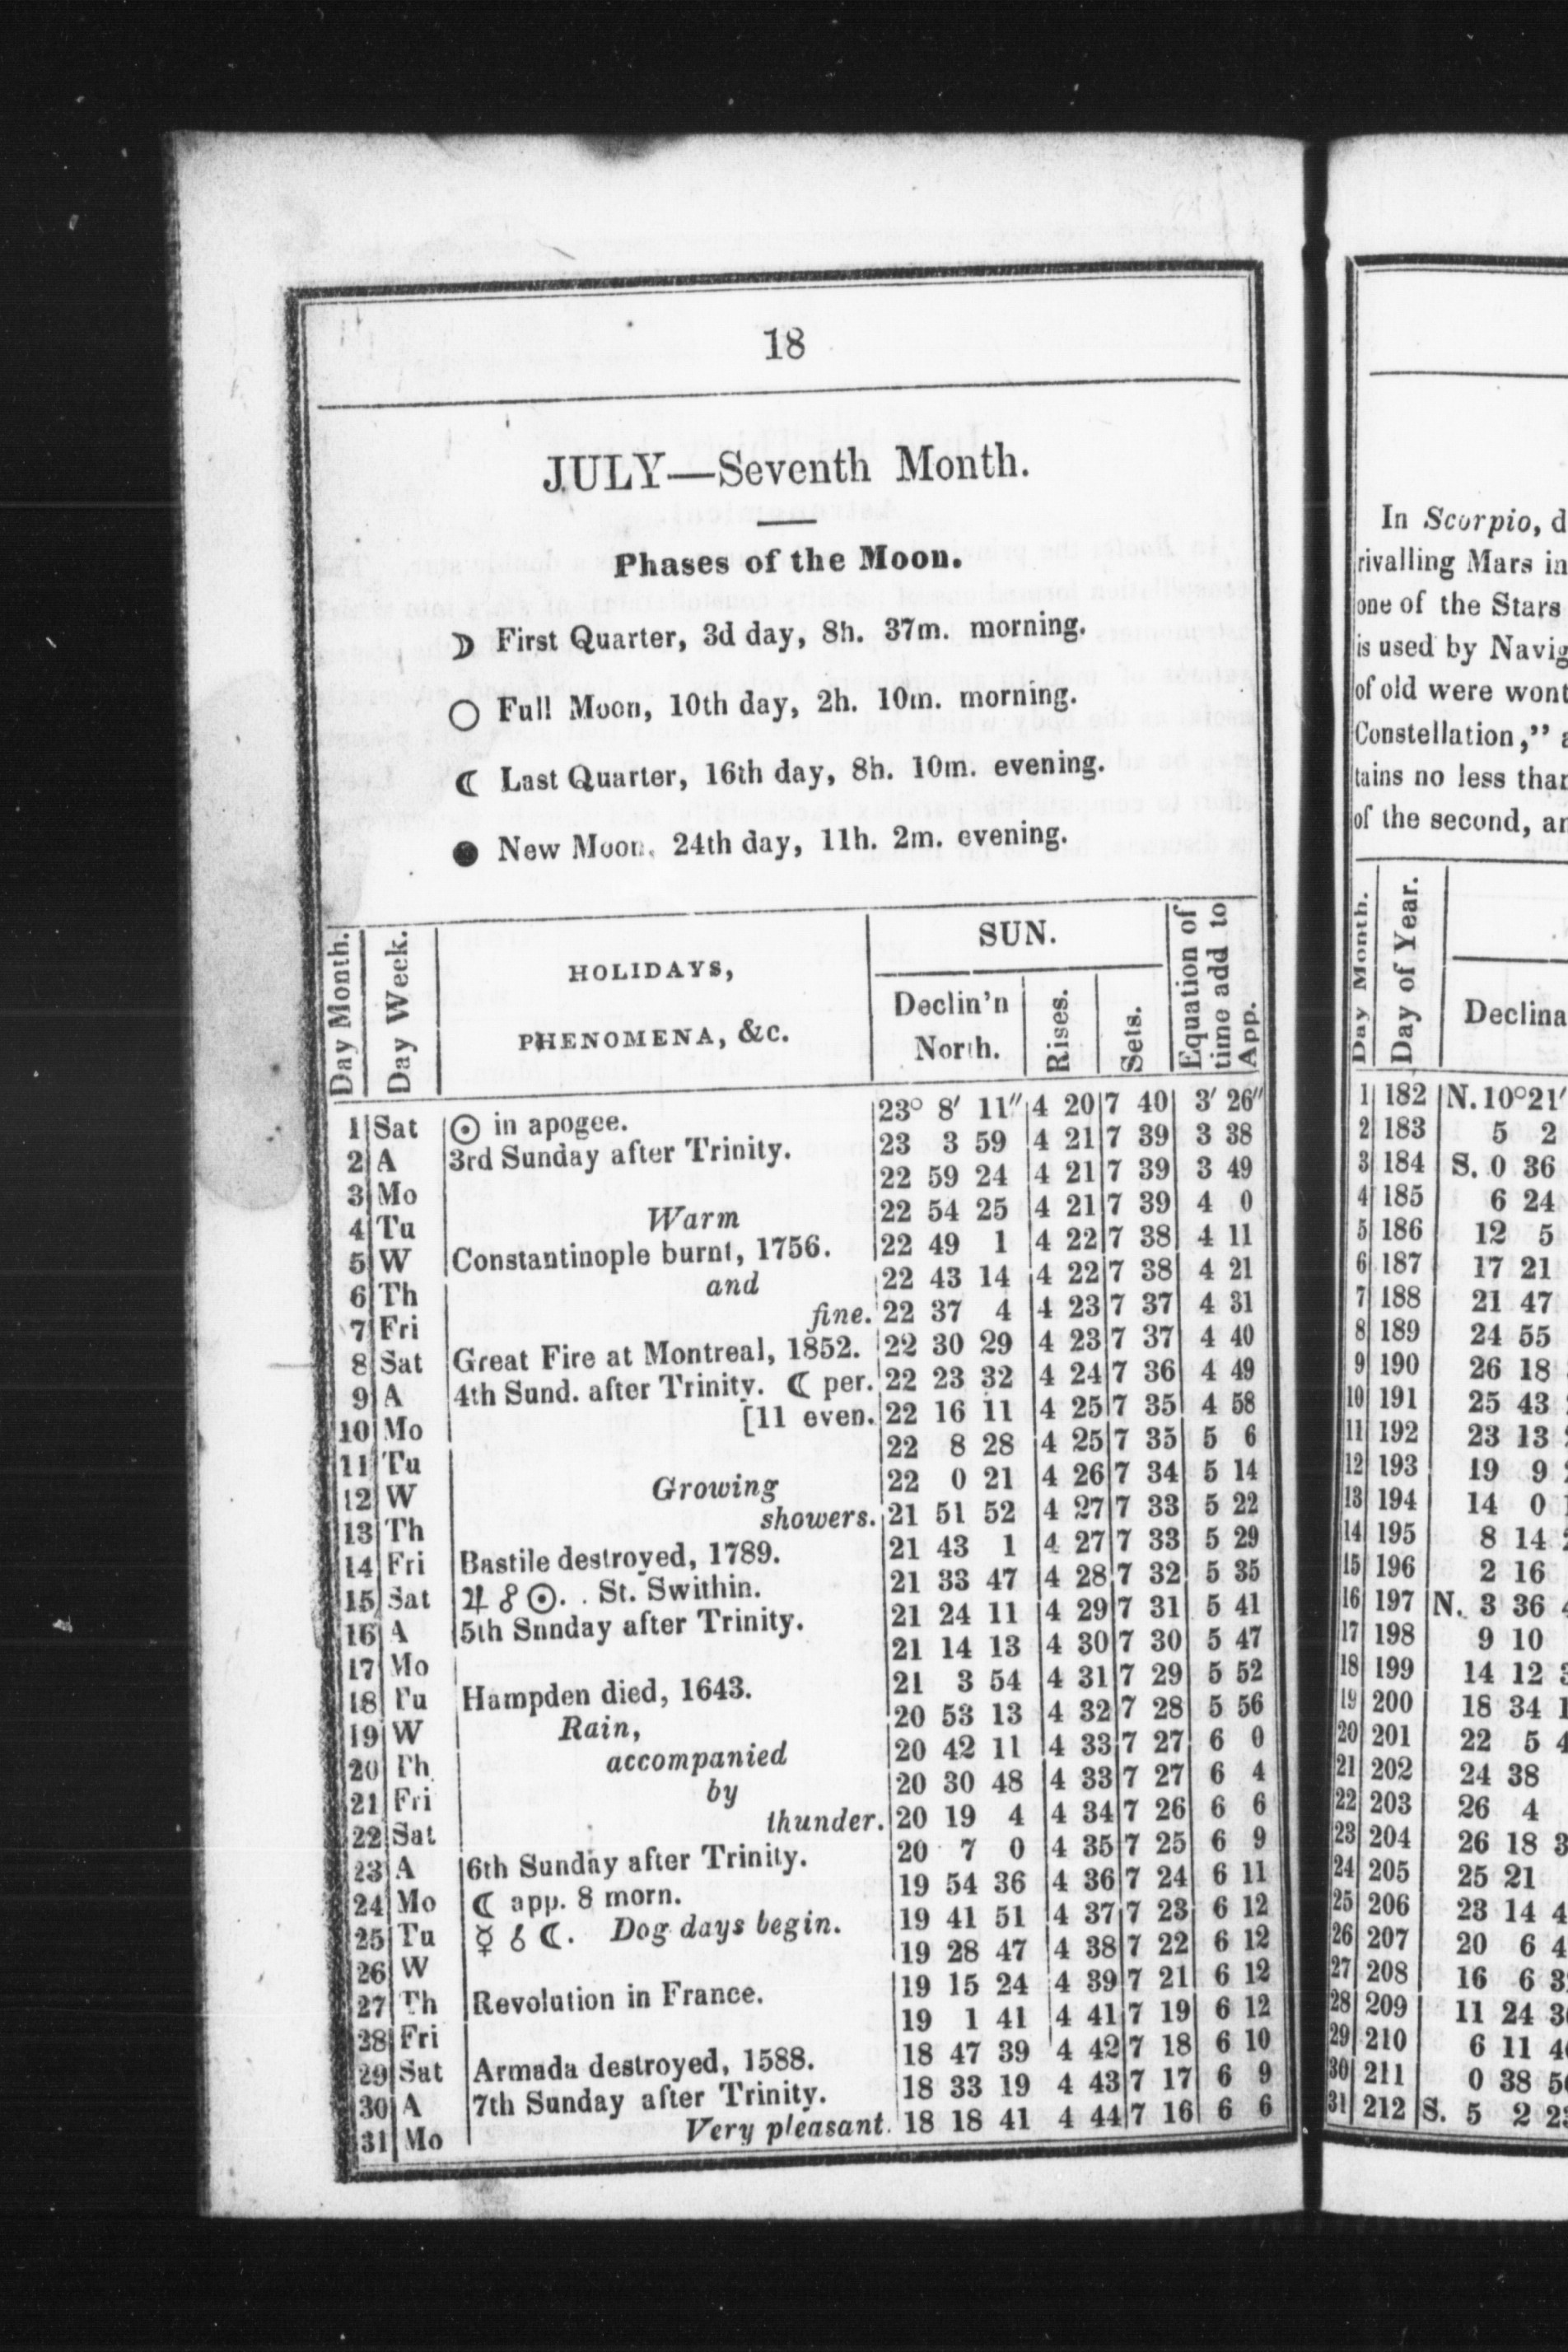 18
JULY—Seventh Month.
Phases of the Moon.
☽ First Quarter, 3d day, 8h. 37m. morning.
○ Full Moon, 10th day, 2h. 10m. morning.
☾ Last Quarter, 16th day, 8h. 10m. evening.
● New Moon, 24th day, 11h. 2m. evening.
Day Month. Day Week. HOLIDAYS, PHENOMENA, &c. SUN. Declin'n North. Rises. Sets. Equation of time add to App.
1 Sat ☉ in apogee. 23° 8′ 11″ 4 20 7 40 3′ 26″
2 A 3rd Sunday after Trinity. 23 3 59 4 21 7 39 3 38
3 Mo 22 59 24 4 21 7 39 3 49
4 Tu Warm 22 54 25 4 21 7 39 4 0
5 W Constantinople burnt, 1756. 22 49 1 4 22 7 38 4 11
6 Th and 22 43 14 4 22 7 38 4 21
7 Fri fine. 22 37 4 4 23 7 37 4 31
8 Sat Great Fire at Montreal, 1852. 22 30 29 4 23 7 37 4 40
9 A 4th Sund. after Trinity. ☾ per. 22 23 32 4 24 7 36 4 49
10 Mo [11 even. 22 16 11 4 25 7 35 4 58
11 Tu 22 8 28 4 25 7 35 5 6
12 W Growing 22 0 21 4 26 7 34 5 14
13 Th showers. 21 51 52 4 27 7 33 5 22
14 Fri Bastile destroyed, 1789. 21 43 1 4 27 7 33 5 29
15 Sat ♃ ☍ ☉. . St. Swithin. 21 33 47 4 28 7 32 5 35
16 A 5th Snnday after Trinity. 21 24 11 4 29 7 31 5 41
17 Mo 21 14 13 4 30 7 30 5 47
18 Tu Hampden died, 1643. 21 3 54 4 31 7 29 5 52
19 W Rain, 20 53 13 4 32 7 28 5 56
20 Th accompanied 20 42 11 4 33 7 27 6 0
21 Fri by 20 30 48 4 33 7 27 6 4
22 Sat thunder. 20 19 4 4 34 7 26 6 6
23 A 6th Sunday after Trinity. 20 7 0 4 35 7 25 6 9
24 Mo ☾ app. 8 morn. 19 54 36 4 36 7 24 6 11
25 Tu ☿ ☌ ☾. Dog days begin. 19 41 51 4 37 7 23 6 12
26 W 19 28 47 4 38 7 22 6 12
27 Th Revolution in France. 19 15 24 4 39 7 21 6 12
28 Fri 19 1 41 4 41 7 19 6 12
29 Sat Armada destroyed, 1588. 18 47 39 4 42 7 18 6 10
30 A 7th Sunday after Trinity. 18 33 19 4 43 7 17 6 9
31 Mo Very pleasant. 18 18 41 4 44 7 16 6 6
In Scorpio,
rivalling Mars in
one of the Stars
is used by
of old were wont
Constellation,"
tains no less
of the second,
Day Month. Day of Year.
1 182 N. 10°21′
2 183 5 2
3 184 S. 0 36
4 185 6 24
5 186 12 5
6 187 17 21
7 188 21 47
8 189 24 55
9 190 26 18
10 191 25 43
11 192 23 13
12 193 19 9
13 194 14 0
14 195 8 14
15 196 2 16
16 197 N. 3 36
17 198 9 10
18 199 14 12
19 200 18 34
20 201 22 5
21 202 24 38
22 203 26 4
23 204 26 18
24 205 25 21
25 206 23 14
26 207 20 6
27 208 16 6
28 209 11 24
29 210 6 11
30 211 0 38
31 212 S. 5 2